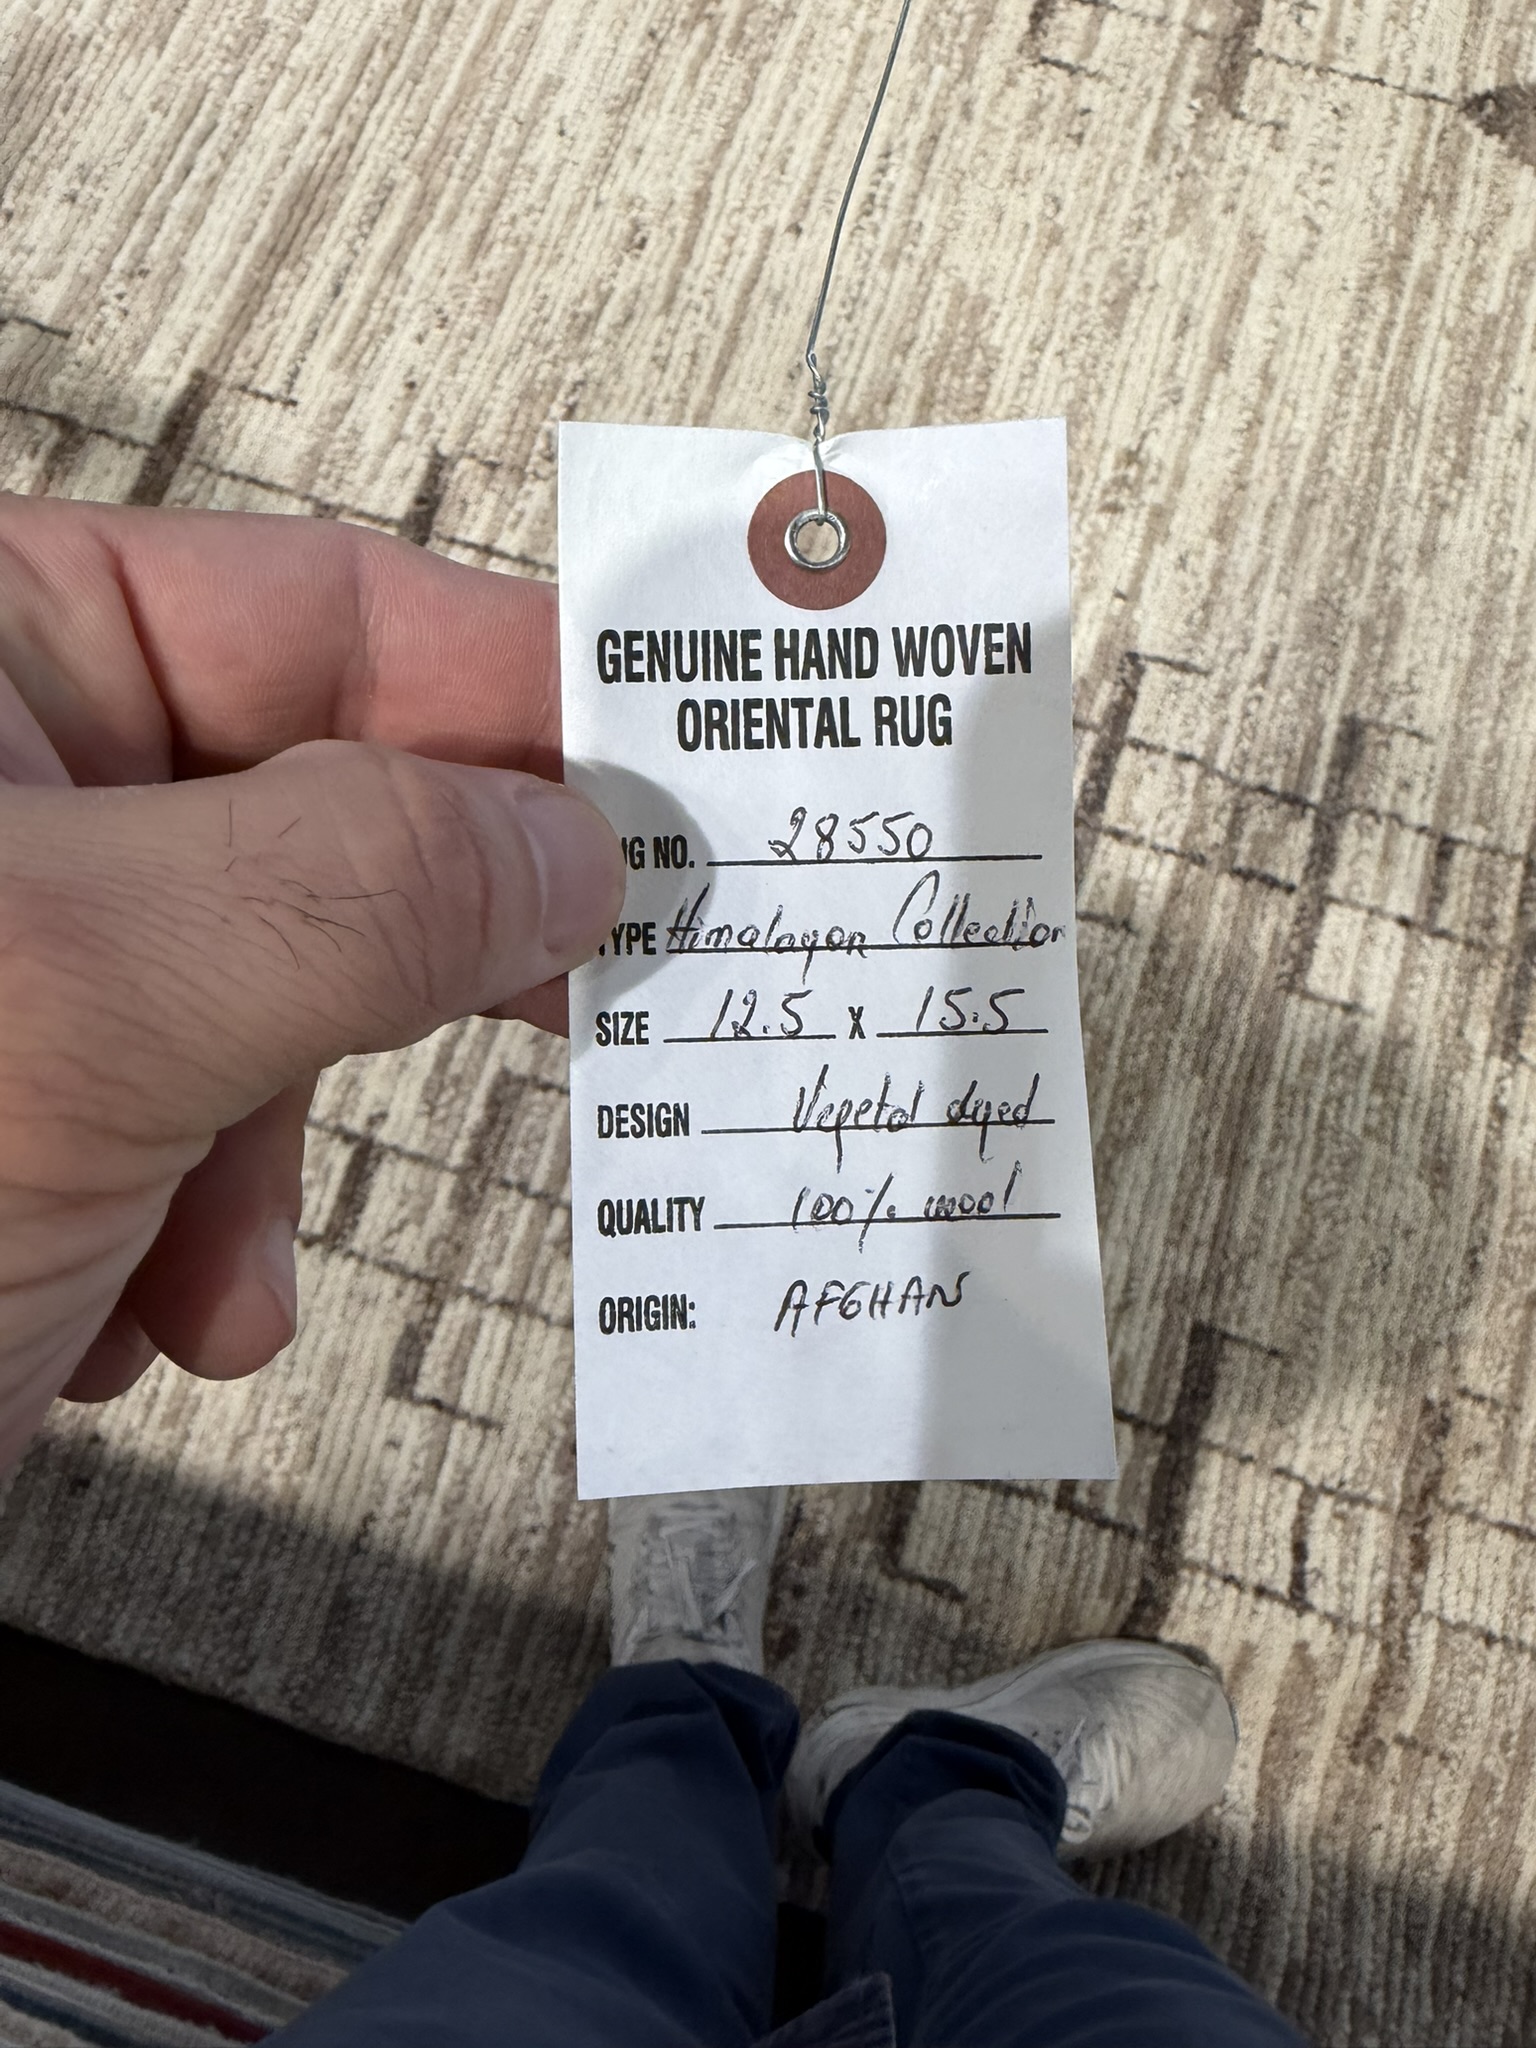 GENUINE HAND WOVEN
ORIENTAL RUG
UG NO. 28550
TYPE Himalayan Collection
SIZE 12.5 X 15.5
DESIGN Vegetal dyed
QUALITY 100% wool
ORIGIN: AFGHAN